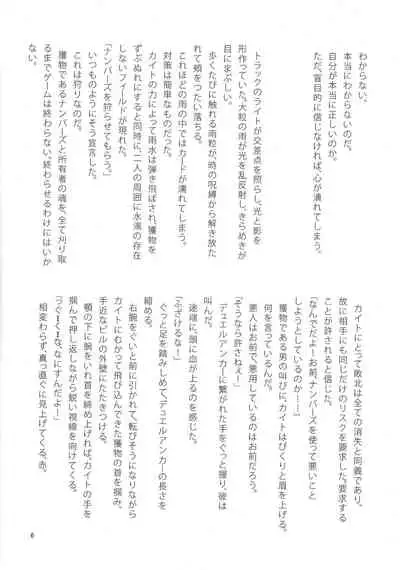 わからない。
本当にわからないのだ。
自分が本当に正しいのか。
ただ、盲目的に信じなければ、心が潰れてしまう。
トラックのライトが交差点を照らし、光と影を
形作っていた。大粒の雨が光を乱反射し、きらめきが
目にまぶしい。
歩くたびに触れる雨粒が、時の呪縛から解き放た
れて頬をつたい落ちる。
これほどの雨の中ではカードが濡れてしまう。
対策は簡単なものだった。
カイトの力によって雨水は弾き飛ばされ、獲物を
ずぶぬれにすると同時に、二人の周囲に水滴の存在
しないフィールドが現れた。
「ナンバーズを狩らせてもらう。」
いつものようにそう宣言した。
これは狩りなのだ。
獲物であるナンバーズと所有者の魂を、全て刈り取
るまでゲームは終わらない。終わらせるわけにはいか
ない。
カイトにとって敗北は全ての消失と同義であり、
故に相手にも同じだけのリスクを要求した。要求する
ことが許されると信じた。
「なんでだよ！お前、ナンバーズを使って悪いこと
しようとしているのか……！」
獲物である男の叫びに、カイトはぴくりと眉を上げる。
何を言っているんだ。
悪人はお前で、悪用しているのはお前だろう。
「そうなら許さねぇ！」
デュエルアンカーに繋がれた手をぐっと握り、彼は
叫んだ。
途端に、頭に血が上るのを感じた。
「ふざけるな！」
ぐっと足を踏みしめて、デュエルアンカーの長さを
縮める。
右腕をぐいと前に引かれて、転びそうになりながら
カイトにむかって飛び込んできた獲物の首を掴み、
手近なビルの外壁にたたきつける。
顎の下に腕をいれ首を締め上げれば、カイトの手を
掴んで押し返しながら鋭い視線を向けてくる。
「うぐ！く、なにすんだよー！」
相変わらず真っ直ぐに見上げてくる、赤。
6